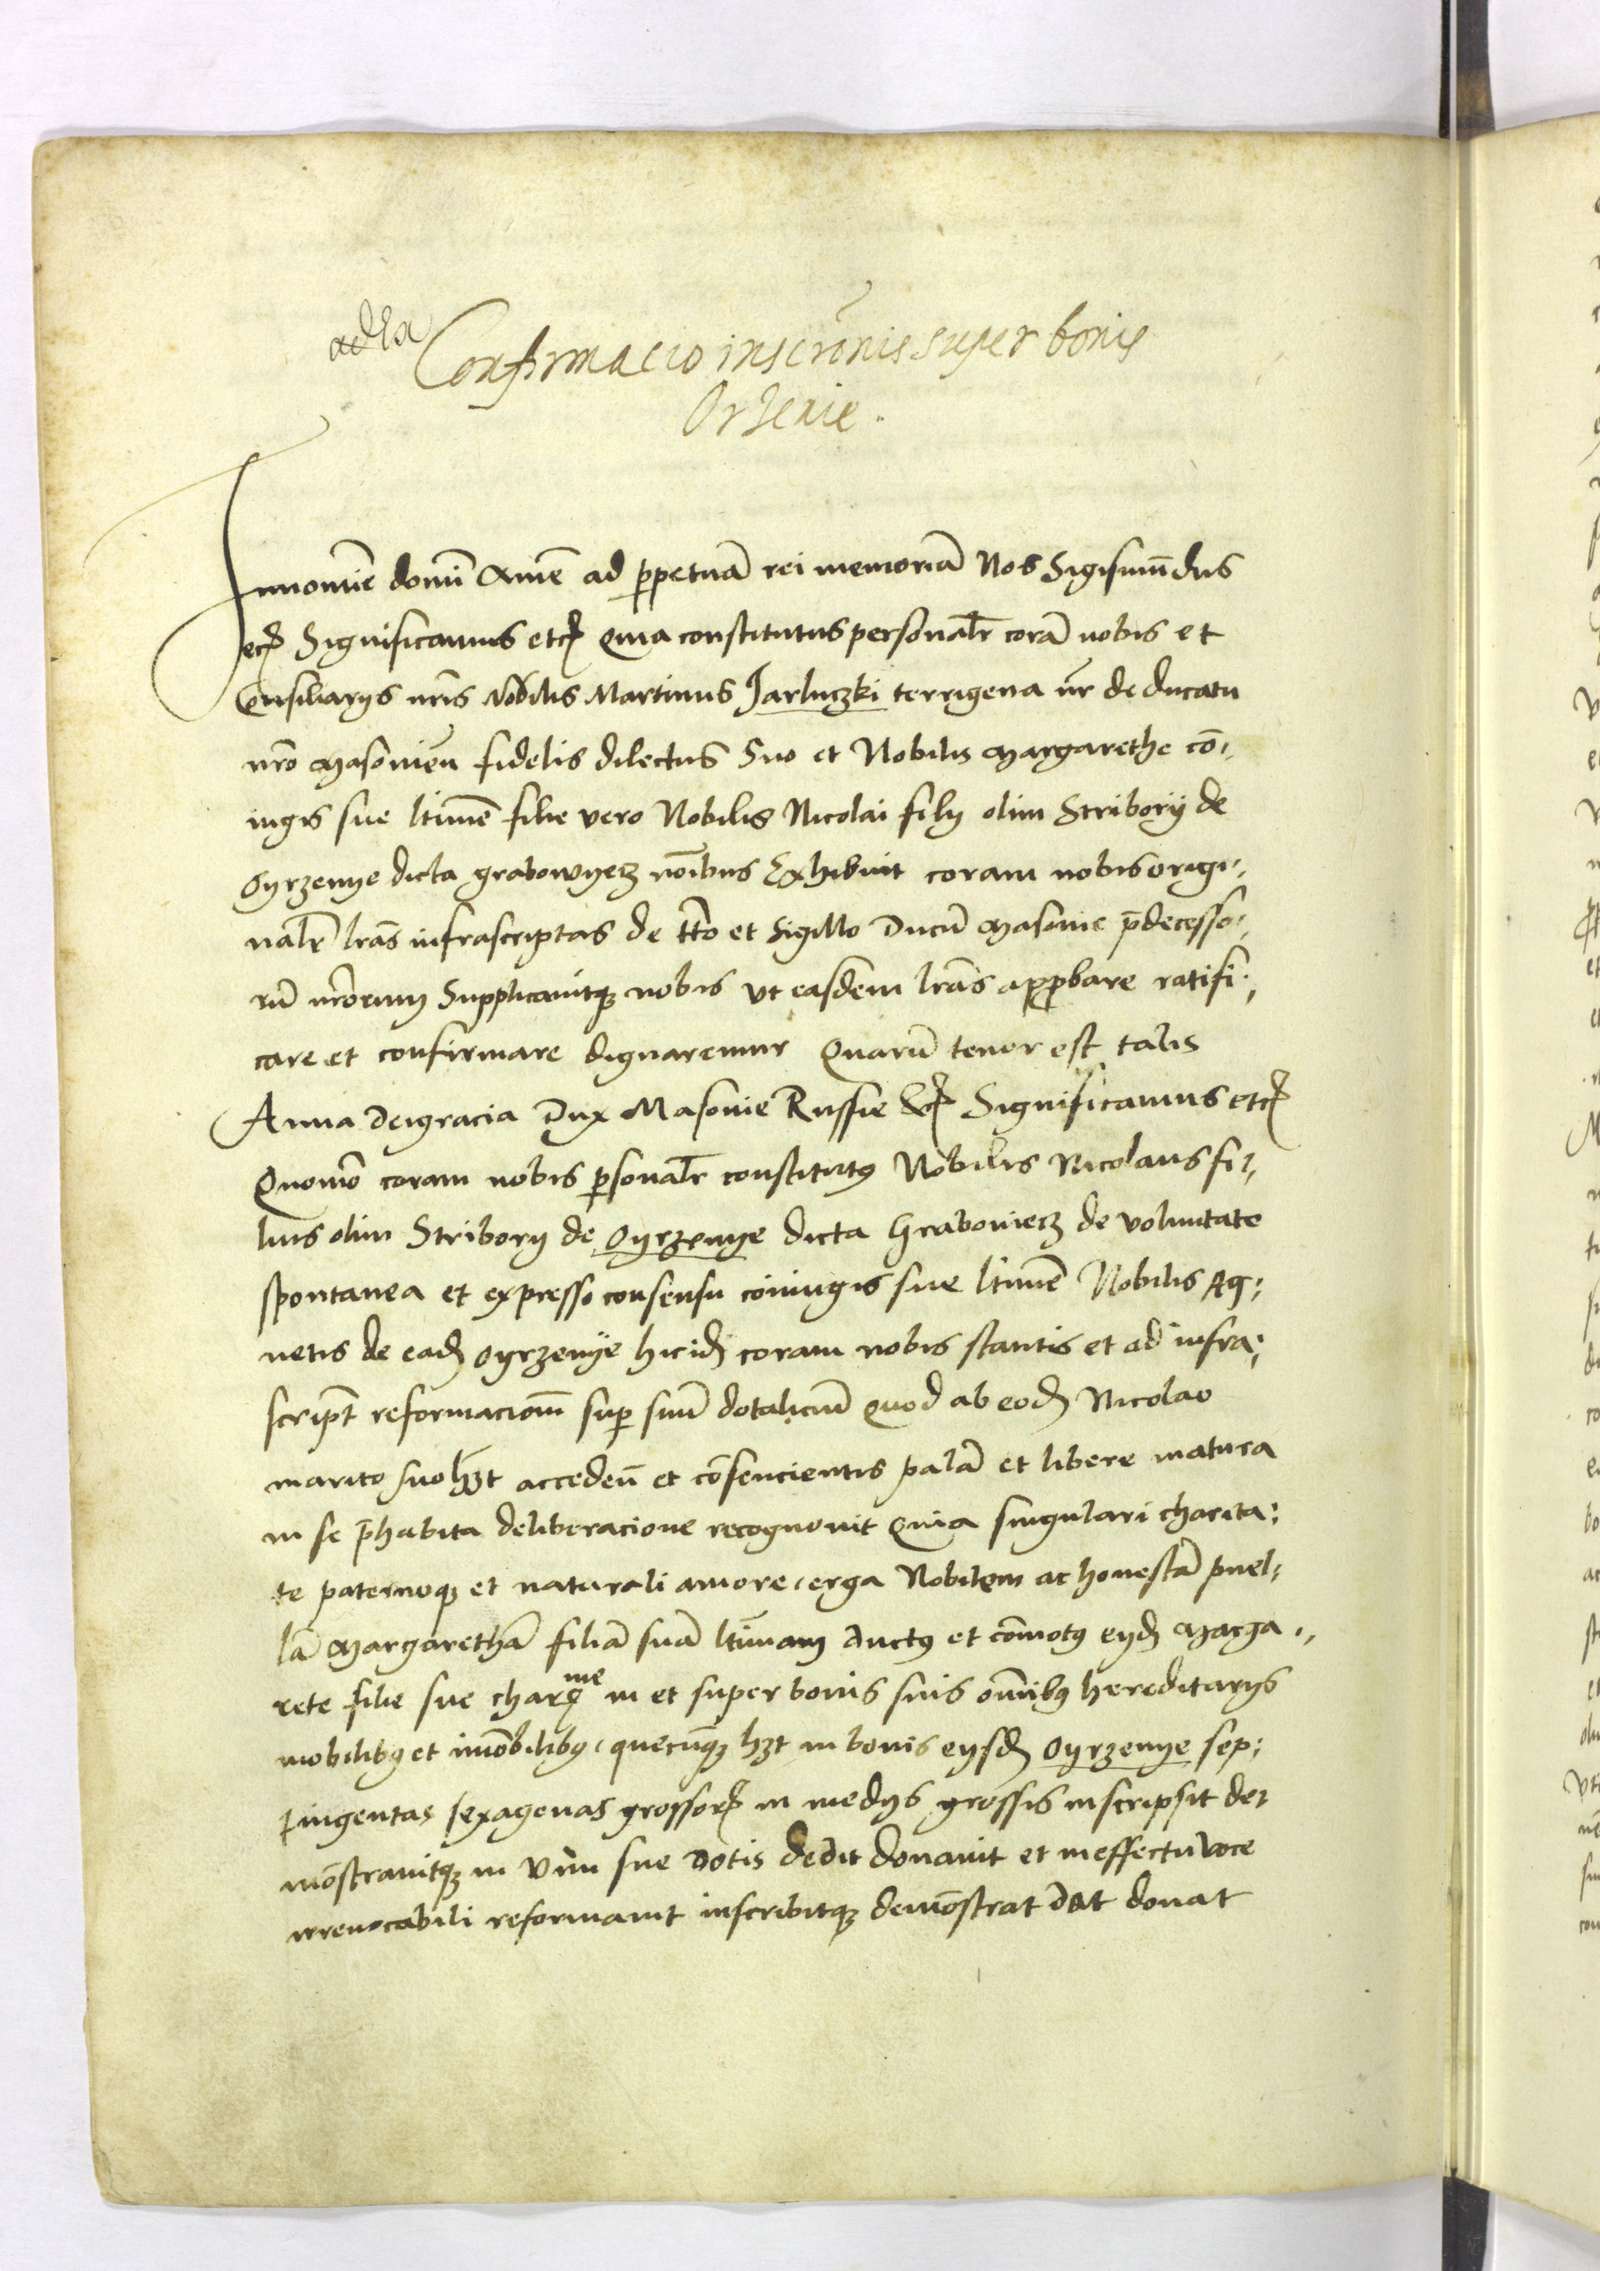 Confirmacio inscrōnis super bonis
Orzenie.
Innomīe domī Amē ad ppetuā rei memoriā Nos Sigismūdus
etc Significamus etc Quia constitutus personalr corā nobis et
Consiliarys nris Nobilis Martinus Jarluczki terrigena nr de ducatu
nro Masouien fidelis dilectus Suo et Nobilis Margarethe cō-
iugis sue ltime filie vero Nobilis Nicolai fily olim Stribory de
Oyrzenye dicta grabowyecz noībus Exhibuit coram nobis origi-
nalr lras infrascriptas de tto et Sigillo Ducū Masouie p̄decesso-
rū nrorum Supplicauitq nobis vt easdem lras appbare ratifi-
care et confirmare dignaremur Quarū tenor est talis
Anna Deigracia Dux Masouie Russie etc Significamus etc
Quomō coram nobis psonalr constitutus Nobilis Nicolaus fi-
lius olim Stribory de Oyrzenye dicta Graboviecz de voluntate
spontanea et expresso consensu coniugis sue ltime Nobilis Ag-
netis de ead Oyrzenye hicid coram nobis stantis et ad infra-
script reformacionē sup suū dotaliciū quod ab eod Nicolao
marito suo hzt acceden et cōsencientis palā et libere matura
in se p̄habita deliberacione recognouit Quia singulari charita-
te paternoq et naturali amore erga Nobilem ac honestā puel-
lā Margarethā filiā suā ltimam ductus et cōmotus eyd Marga-
rete filie sue charme in et super bonis suis omībus hereditarys
mobilibus et imōbilibus quecūq hzt in bonis eysd Oyrzenye sep-
tingentas sexagenas grossor in medys grossis inscripsit de-
mōstrauitq in vim sue dotis dedit donauit et ineffectu voce
irreuocabili reformauit inscribitq demōstrat dat donat